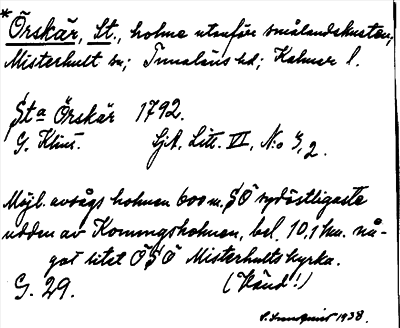 * Örskär, St., holme utanför smålandskusten;
Misterhult sn; Tunaläns hd; Kalmar l.
Sta Örskär 1792.
G. Klint. Sjk. Litt. VI, No 3,2.
Möjl. avsågs holmen 600 m. SÖ sydöstligaste
udden av Kommgsholmen, bel. 10,1 km. nå-
got litet ÖSÖ Misterhults kyrka.
G. 29. (Känd!)
1938.